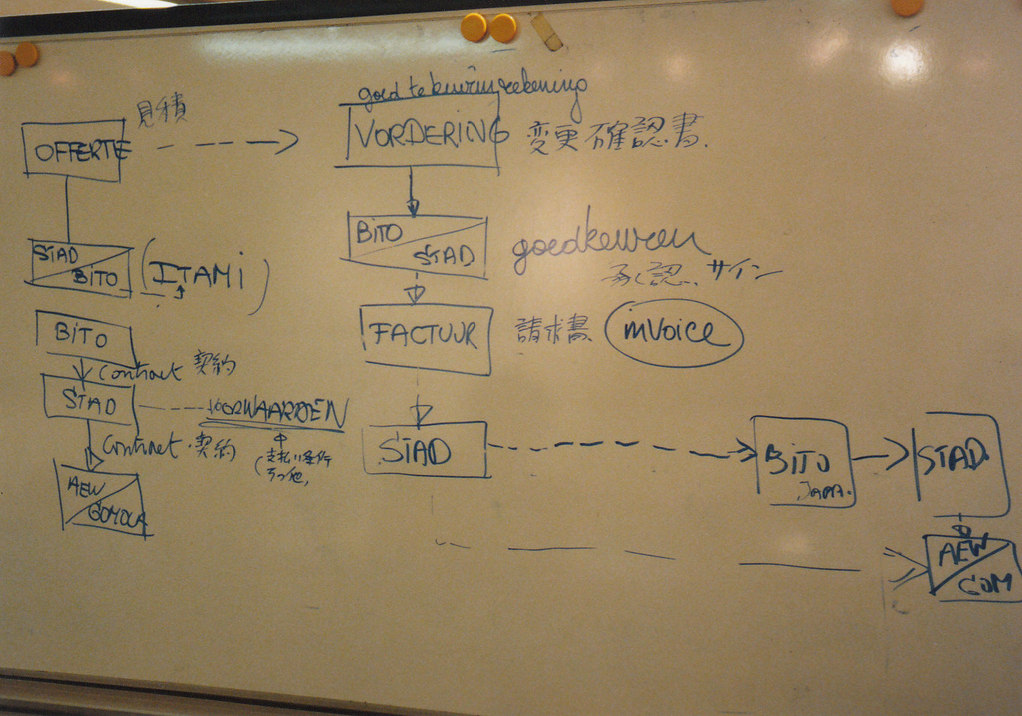 見積
OFFERTE
STAD
BITO
(ITAMI)
BITO
Contract 契約
STAD
VOORWAARDEN
Contract・契約
AEW
GOMOLA
goed te keuren rekening
VORDERING
変更確認書.
BITO
STAD
goedkeuren
承認. サイン
FACTUUR
請求書
invoice
STAD
BITO
JAPA.
STAD.
AEW
GOM